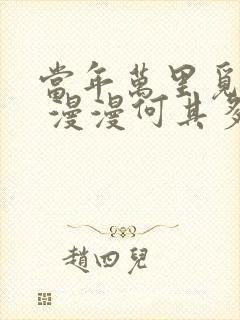 當年萬里覓
漫漫何其多
趙四兒